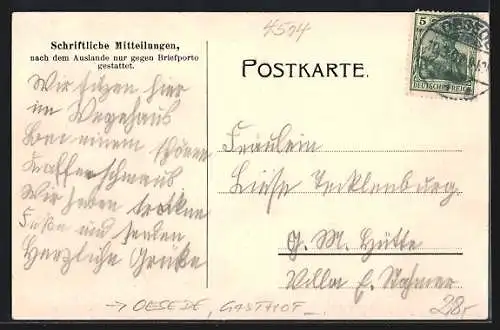 4504
Schriftliche Mitteilungen,
nach dem Auslande nur gegen Briefporto
gestattet.
POSTKARTE.
5
DEUTSCHES REICH
Wir sitzen hier
im
bei einem schönen
Kaffeeschmaus
Wir haben trockne
Füße und senden
Herzliche Grüße
Fräulein
Liese Tecklenburg.
G. M. Hütte
Villa E. Stahmer
→ OESEDE, GASTHOF
28.-